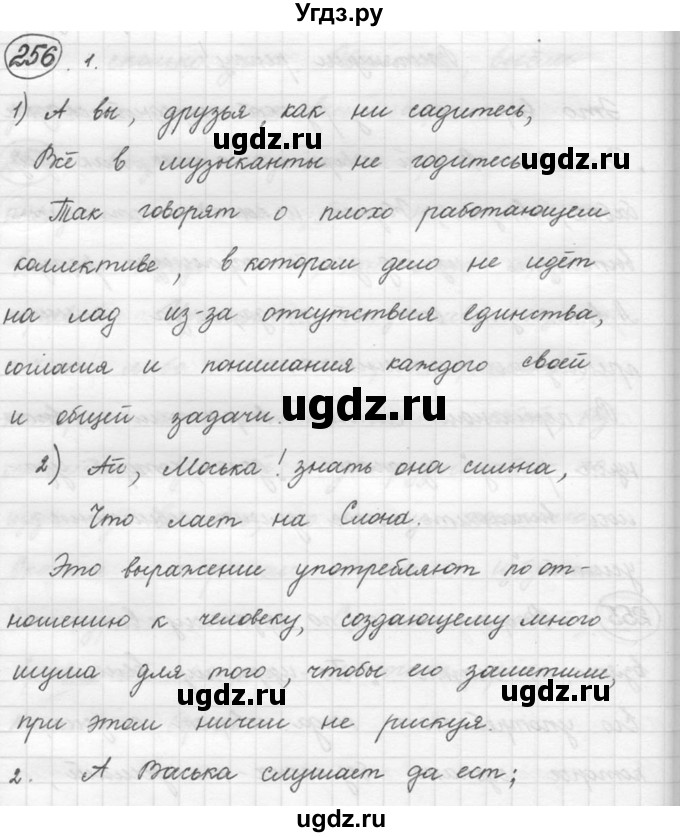 Угдз.ру
256. 1.
1) А вы, друзья, как ни садитесь,
ugdz.ru
Всё в музыканты не годитесь.
ugdz.ru
Так говорят о плохо работающем
коллективе, в котором дело не идёт
ugdz.ru
на лад из-за отсутствия единства,
согласия и понимания каждого своей
и общей задачи.
ugdz.ru
2) Ай, Моська! знать она сильна,
Что лает на Слона.
Это выражение употребляют по от-
ношению к человеку, создающему много
шума для того, чтобы его заметили,
ugdz.ru ugdz.ru
при этом ничем не рискуя.
2. А Васька слушает да ест;
Угдз.ру